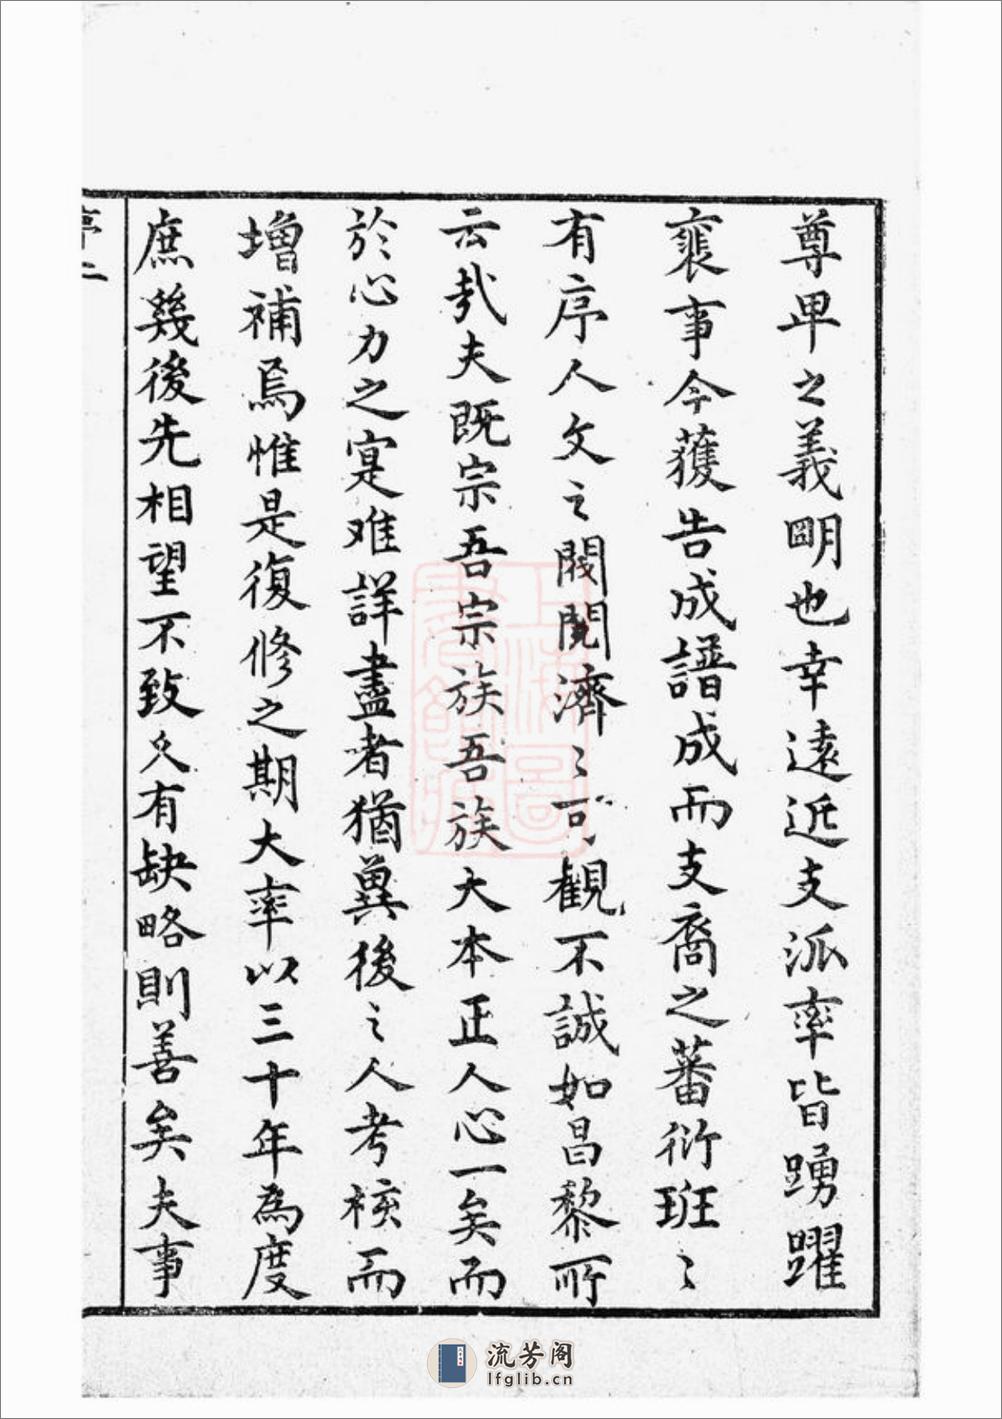 尊卑之義明也幸遠近支派率皆踴躍
襄事今獲告成譜成而支裔之蕃衍班〻
有序人文之閥閱濟〻可觀不誠如昌黎所
云哉夫既宗吾宗族吾族大本正人心一矣而
於心力之寔难詳盡者猶冀後之人考核而
增補焉惟是復修之期大率以三十年為度
庶幾後先相望不致久有缺略則善矣夫事
序二
上海圖
書館藏
流芳阁
lfglib.cn